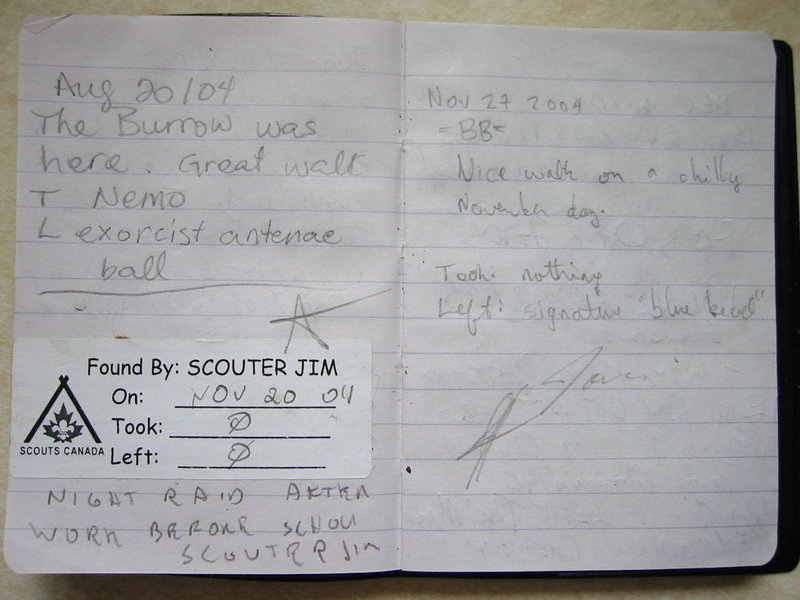 Aug 20/04
The Burrow was
here. Great walk
T Nemo
L exorcist antenae
ball
Found By: SCOUTER JIM
On: NOV 20 04
Took: Ø
Left: Ø
SCOUTS CANADA
NIGHT RAID AFTER
WORK BEFORE SCHOU
SCOUTER JIM
Nov 27 2004
=BB=
Nice walk on a chilly
November day.
Took: nothing
Left: signature "blue bead"